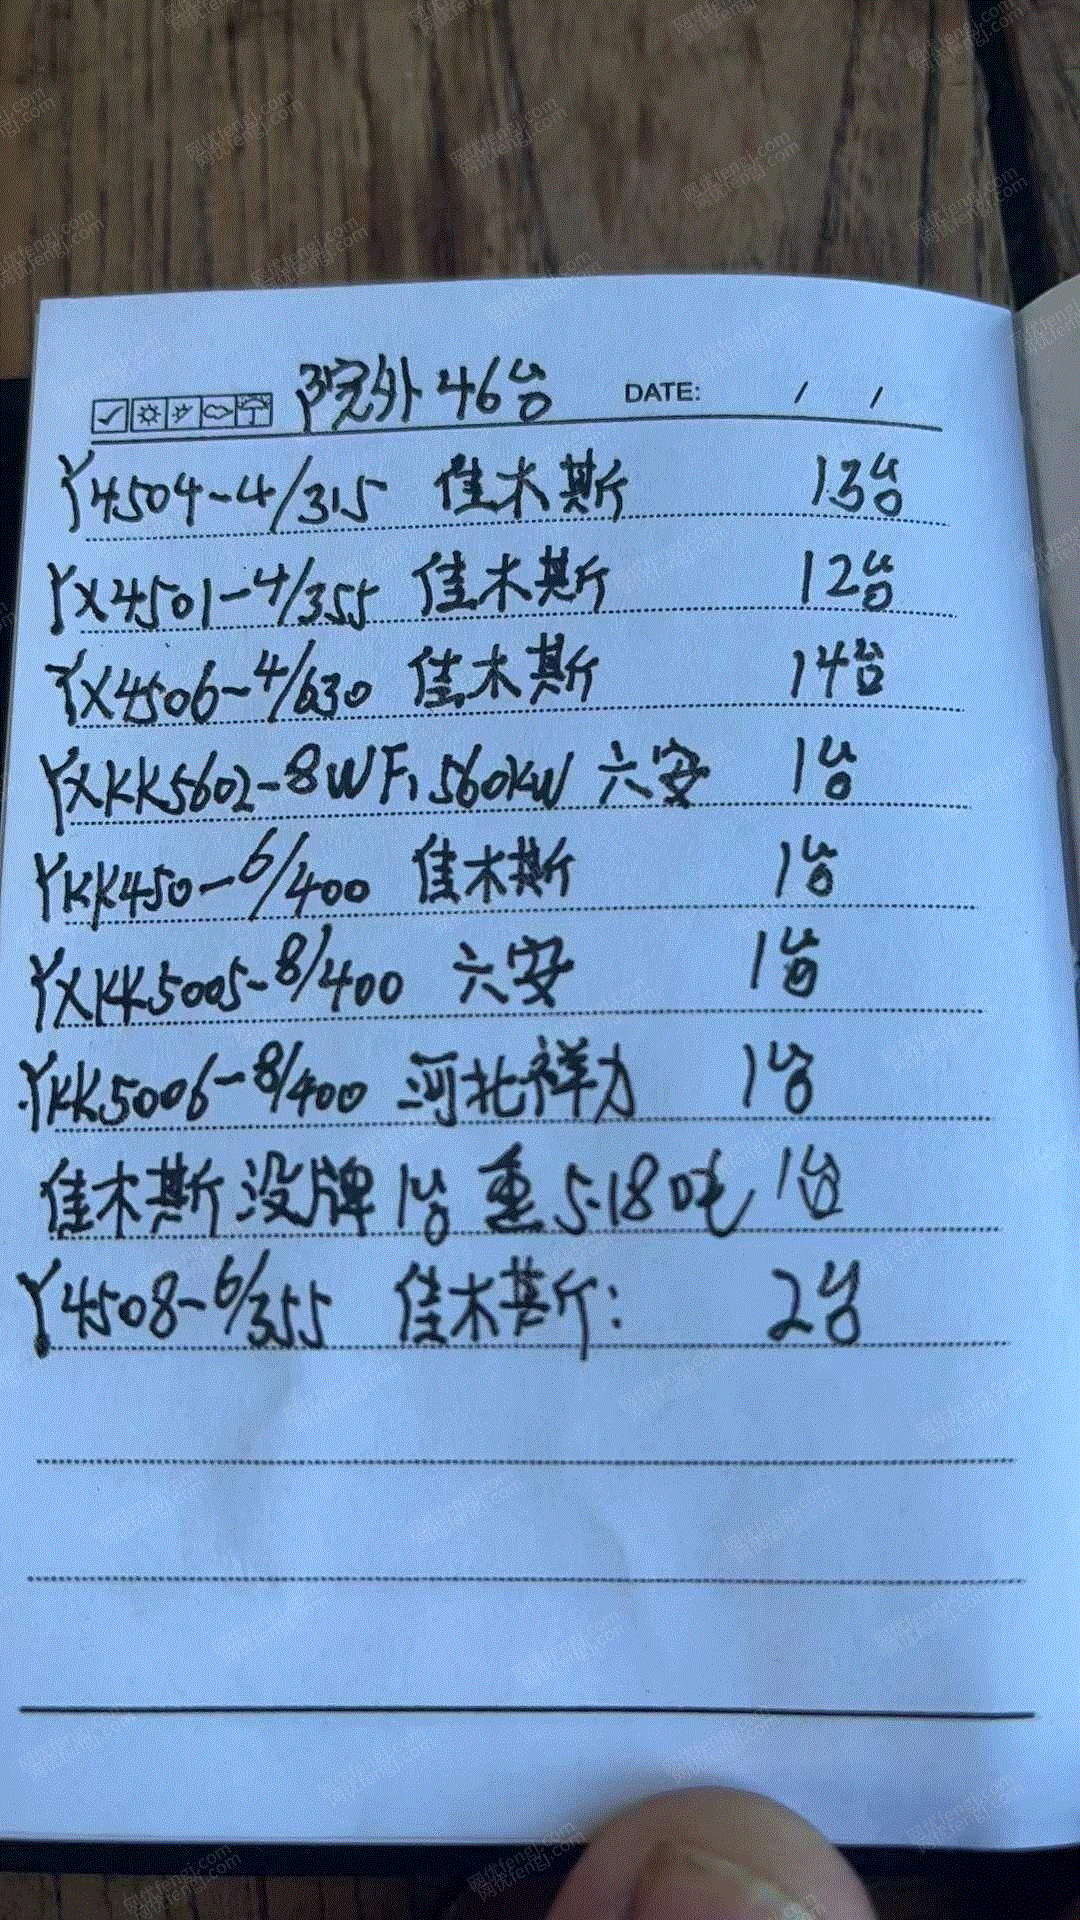 院外46台 DATE: / /
Y4504-4/315 佳木斯 13台
YX4501-4/355 佳木斯 12台
YX4506-4/630 佳木斯 14台
YXKK5602-8WF1 560KW 六安 1台
YKK450-6/400 佳木斯 1台
YXKK5005-8/400 六安 1台
YKK5006-8/400 河北祥力 1台
佳木斯没牌1台 重5.18吨 1台
Y4508-6/355 佳木斯: 2台